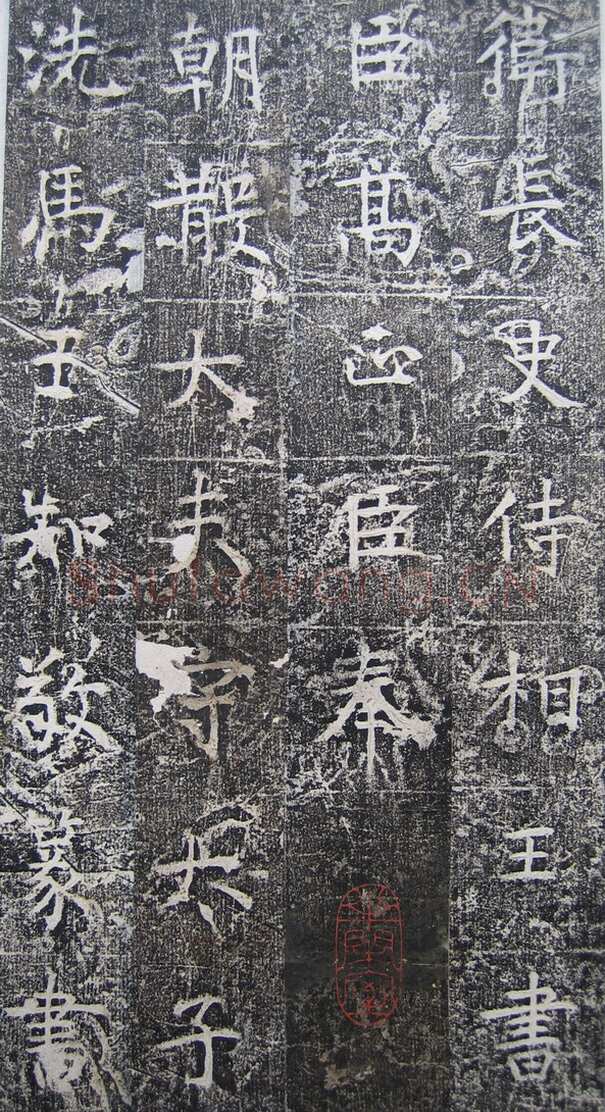 衛長史侍相王書
臣高正臣奉
朝散大夫守太子
洗馬王知敬篆書
Shufawang.CN